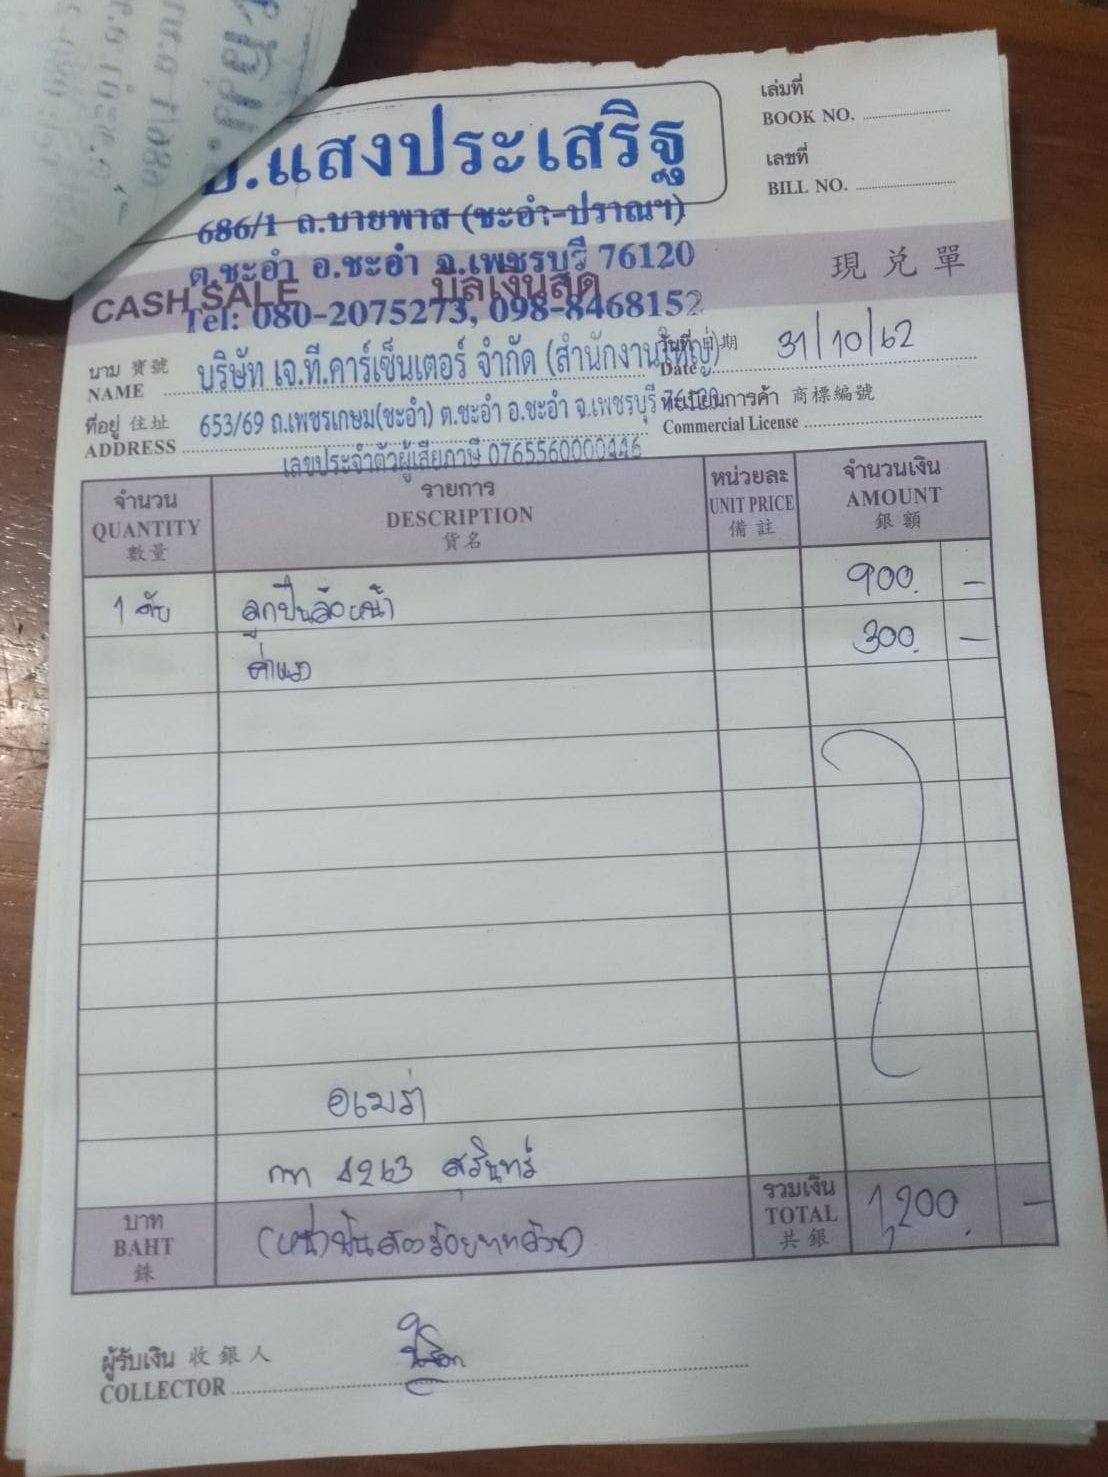 .แสงประเสริฐ
686/1 ถ.บายพาส (ชะอำ-ปราณฯ)
ต.ชะอำ อ.ชะอำ จ.เพชรบุรี 76120
Tel: 080-2075273, 098-8468152
เล่มที่
BOOK NO.
เลขที่
BILL NO.
CASH SALE บิลเงินสด 現兌單
นาม 寶號 บริษัท เจ.ที.คาร์เซ็นเตอร์ จำกัด (สำนักงานใหญ่)
NAME
วันที่ 日期 31/10/62
Date
ที่อยู่ 住址 653/69 ถ.เพชรเกษม(ชะอำ) ต.ชะอำ อ.ชะอำ จ.เพชรบุรี 76120
ADDRESS
ทะเบียนการค้า 商標編號
Commercial License
เลขประจำตัวผู้เสียภาษี 0765560000446
จำนวน รายการ หน่วยละ จำนวนเงิน
QUANTITY DESCRIPTION UNIT PRICE AMOUNT
數量 貨名 備註 銀額
1 ลูกปืนล้อหน้า 900.-
ค่าแรง 300.-
กท 4263 สุรินทร์
บาท
BAHT
銖
(หนึ่งพันสองร้อยบาทถ้วน)
รวมเงิน
TOTAL 1,200.-
共銀
ผู้รับเงิน 收銀人
COLLECTOR